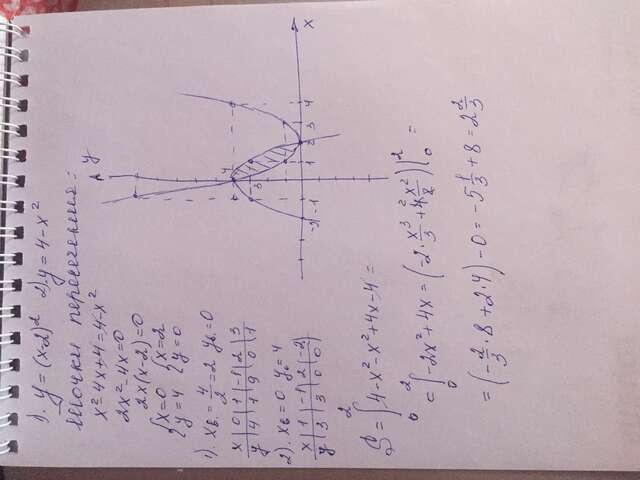 1). y = (x-2)² 2). y = 4 - x²
Точки пересечения:
x² - 4x + 4 = 4 - x²
2x² - 4x = 0
2x(x-2) = 0
{x = 0 {x = 2
{y = 4 {y = 0
1). xв. = 4/2 = 2 yв. = 0
x | 0 | 1 | -1 | 2 | 3
y | 4 | 1 | 9 | 0 | 1
2). xв = 0 yв = 4
x | 1 | -1 | 2 | -2
y | 3 | 3 | 0 | 0
y
4
3
-2 -1 1 2 3 4
x
S = ∫₀² 4 - x² - x² + 4x - 4 =
= ∫₀² -2x² + 4x = (-2 · x³/3 + 4² x²/2) |₀² =
= (-2/3 · 8 + 2 · 4) - 0 = -5 1/3 + 8 = 2 2/3